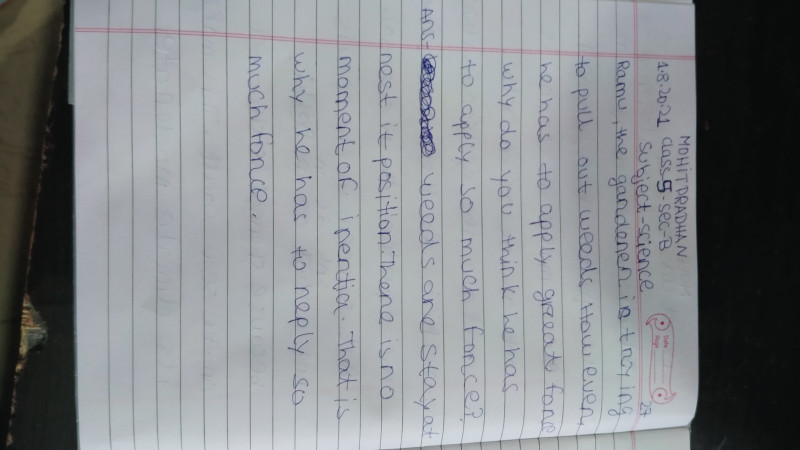 MOHIT PRADHAN
1.8.2021 class 5-sec-B
Subject-science
27
Ramu, the gardener is trying
to pull out weeds. However,
he has to apply greeat force
why do you think he has
to apply so much force?
Ans- weeds are stay at
rest it position. There is no
moment of inertia. That is
why he has to reply so
much force.